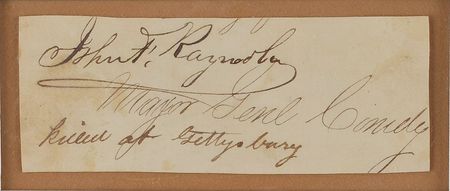 John F. Reynolds
Major Genl Comdg
killed at Gettysburg